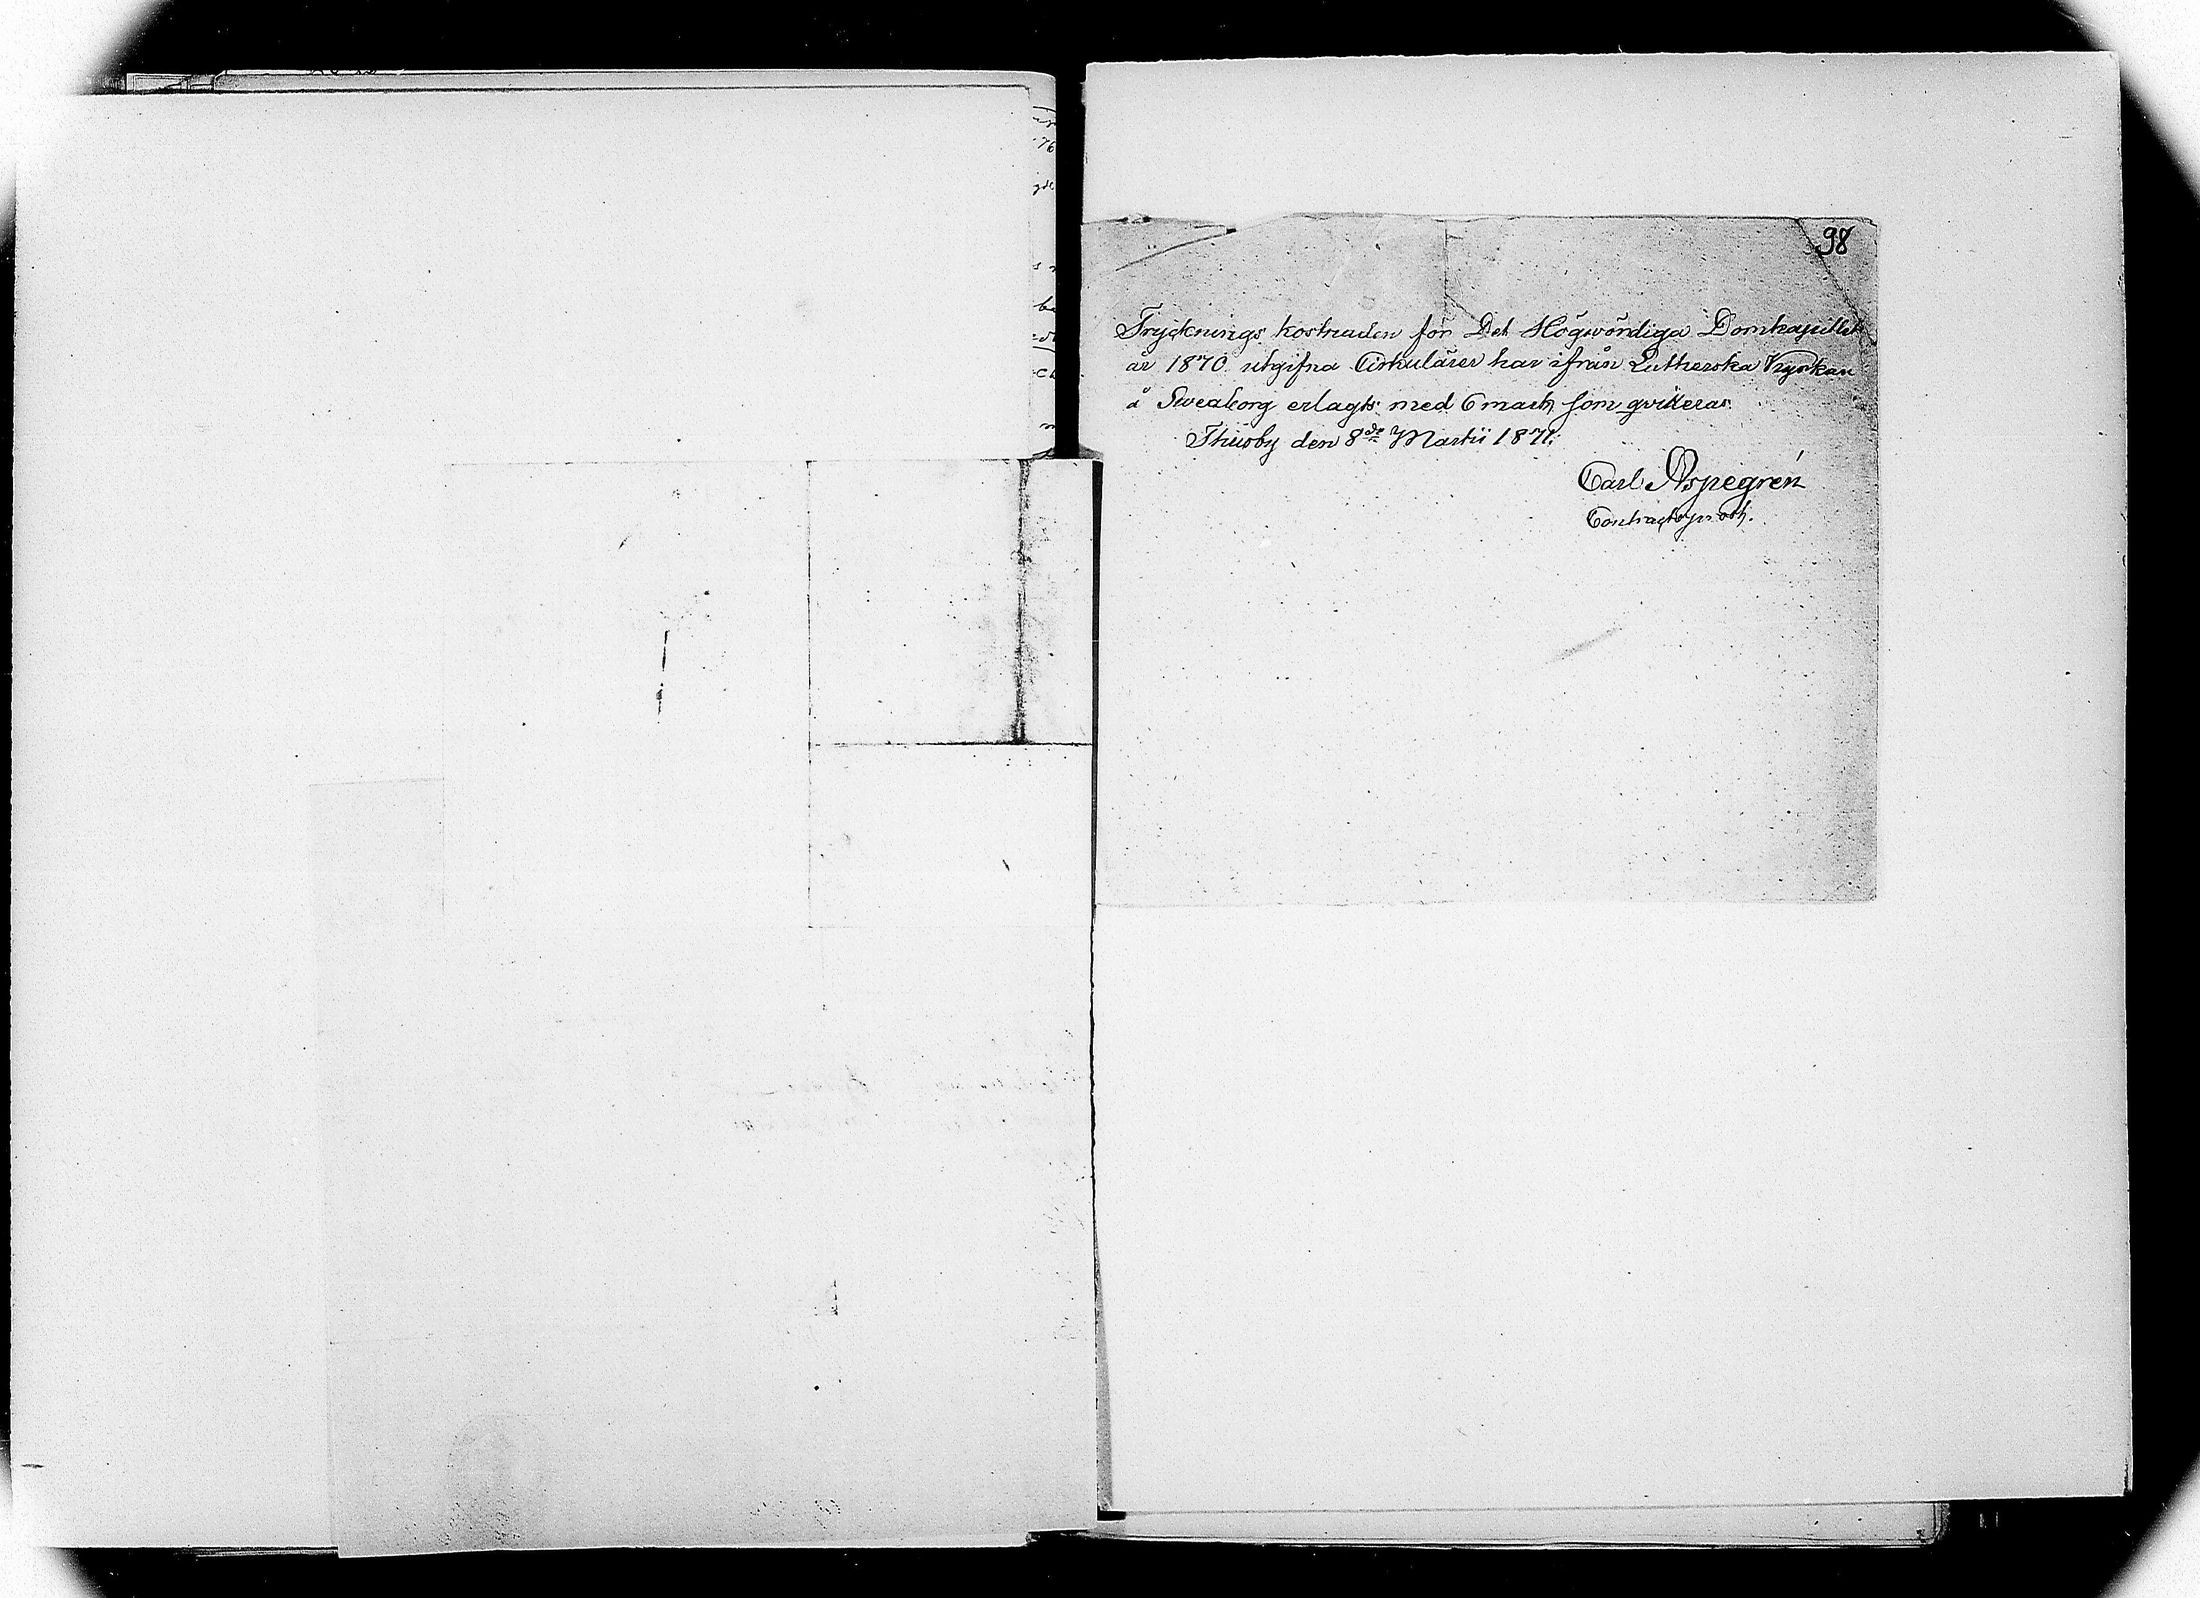 98
Trycknings kostnaden för Det Högwördiga Domkapitlet
år 1870 utgifna Cirkulärer har ifrån Lutherska Kyrkan
å Sweaborg erlagts med 6 mark som qvitteras.
Thusby den 8de Martii 1871.
Carl Aspegrén
Contractspr